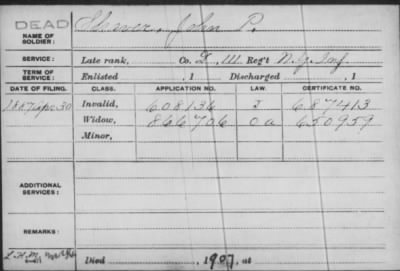 DEAD
NAME OF SOLDIER: John P.
SERVICE: Late rank, Co. 111 Reg't N.Y. Inf.
TERM OF SERVICE: Enlisted , 1 Discharged , 1
DATE OF FILING. CLASS. APPLICATION NO. LAW. CERTIFICATE NO.
1887 Apr 30 Invalid, 608136 J 687413
Widow, 866706 O a 650959
Minor,
ADDITIONAL SERVICES:
REMARKS:
Died , 1907, at